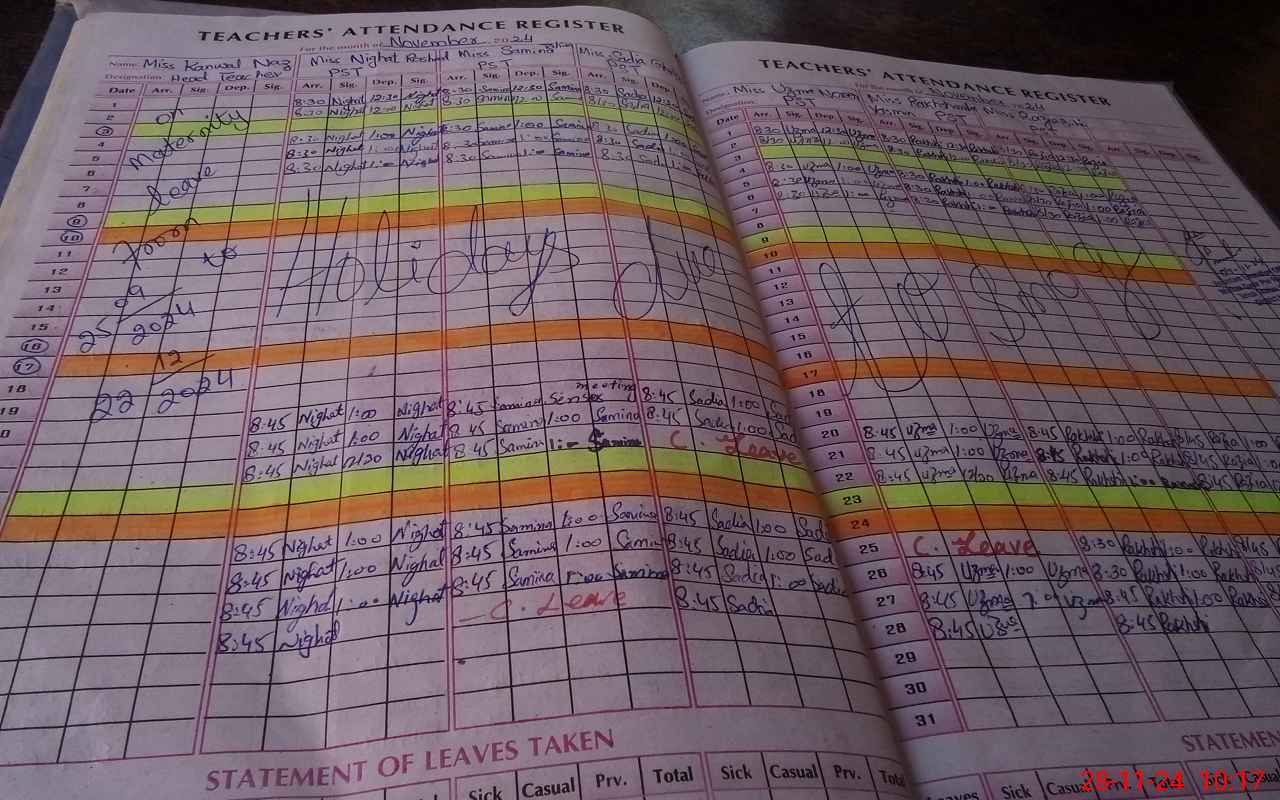 TEACHERS' ATTENDANCE REGISTER
For the month of November 2024
Name Miss Kanwal Naz Miss Nighat Rashid Miss Samina Miss Sadia
Designation Head Teacher PST PST PST
Date Arr. Sig. Dep. Sig. Arr. Sig. Dep. Sig. Arr. Sig. Dep. Sig. Arr. Sig. Dep. Sig.
1 8:30 Nighat 12:30 Nighat 8:30 Samina 12:30 Samina 8:30 Sadia 12:30
2 8:30 Nighat 12:00 Nighat 8:30 Samina 12:00 Samina 8:30 Sadia
3
4 8:30 Nighat 1:00 Nighat 8:30 Samina 1:00 Samina 8:30 Sadia 1:00
5 8:30 Nighat 1:00 Nighat 8:30 Samina 1:00 Samina 8:30 Sadia
6 8:30 Nighat 1:00 Nighat 8:30 Samina 1:00 Samina 8:30 Sadia 1:00
7
8
9
10
11
12
13
14
15
16
17
18
19
on
Maternity
leave
from
to
25 09 2024
22 12 2024
Holidays due
meeting
8:45 Nighat 1:00 Nighat 8:45 Samina 8:45 Sadia 1:00 Sad
8:45 Nighat 1:00 Nighat 8:45 Samina 1:00 Samina 8:45 Sadia 1:00 Sad
8:45 Nighat 12:20 Nighat 8:45 Samina 1:- Samina C. Leave
8:45 Nighat 1:00 Nighat 8:45 Samina 1:00 Samina 8:45 Sadia 1:00 Sadi
8:45 Nighat 1:00 Nighat 8:45 Samina 1:00 Samina 8:45 Sadia 1:00 Sad
8:45 Nighat 1:00 Nighat 8:45 Samina 1:00 Samina 8:45 Sadia 1:00 Sadia
8:45 Nighat C. Leave 8:45 Sadia
STATEMENT OF LEAVES TAKEN
Sick Casual Prv. Total Sick Casual Prv. Tot
TEACHERS' ATTENDANCE REGISTER
For the month of November 2024
Name Miss Uzma Noreen Miss Rakhshanda Miss Razia
Designation PST PST PST
Date Arr. Sig. Dep. Sig. Arr. Sig. Dep. Sig. Arr. Sig. Dep. Sig.
1 8:30 Uzma 12:30 Uzma 8:30 Rakhshi 12:30
2 8:30 Uzma
3
4 8:30 Uzma 1:00 Uzma 8:30 Rakhshi 1:00 Rakhshi
5 8:30 Uzma 1:00 Uzma 8:30 Rakhshi
6 8:30 Uzma 1:00 Uzma 8:30 Rakhshi 1:00 Rakhshi 8:30 Razia 1:00 Razia
7
8
9
10
11
12
13
14
15
16
17
18
19
to Smog
20 8:45 Uzma 1:00 Uzma 8:45 Rakhshi 1:00 Rakhshi 8:45 Razia 1:00
21 8:45 Uzma 1:00 Uzma 8:45 Rakhshi 1:00 Rakhshi 8:45 Razia 1:00
22 8:45 Uzma 12:20 Uzma 8:45 Rakhshi 1:00 8:45 Razia
23
24
25 C. Leave 8:30 Rakhshi 1:00 Rakhshi 8:45
26 8:45 Uzma 1:00 Uzma 8:30 Rakhshi 1:00 Rakhshi 8:45
27 8:45 Uzma 1:00 Uzma 8:45 Rakhshi 1:00 Rakhshi
28 8:45 Uzma 8:45 Rakhshi
29
30
31
STATEMEN
Leaves Sick Casual Prv. Total Sick Casual
28-11-24 10:17